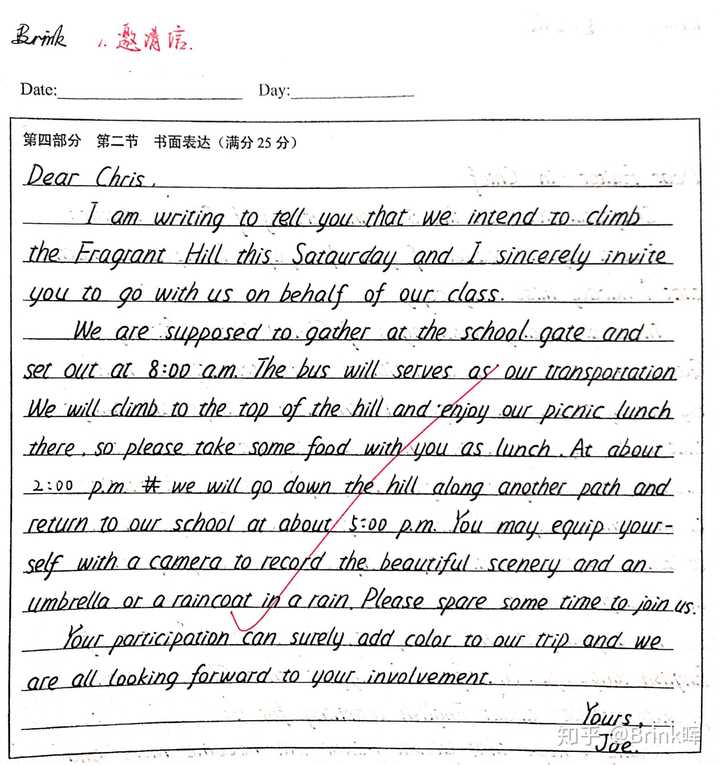 Brink 1.邀请信.
Date: Day:
第四部分 第二节 书面表达（满分25分）
Dear Chris,
I am writing to tell you that we intend to climb
the Fragrant Hill this Sataurday and I sincerely invite
you to go with us on behalf of our class.
We are supposed to gather at the school gate and
set out at 8:00 a.m. The bus will serves as our transportation
We will climb to the top of the hill and enjoy our picnic lunch
there, so please take some food with you as lunch. At about
2:00 p.m we will go down the hill along another path and
return to our school at about 5:00 p.m. You may equip your-
self with a camera to record the beautiful scenery and an
umbrella or a raincoat in a rain. Please spare some time to join us.
Your participation can surely add color to our trip and we
are all looking forward to your involvement.
Yours,
Joe.
知乎 @Brink晖